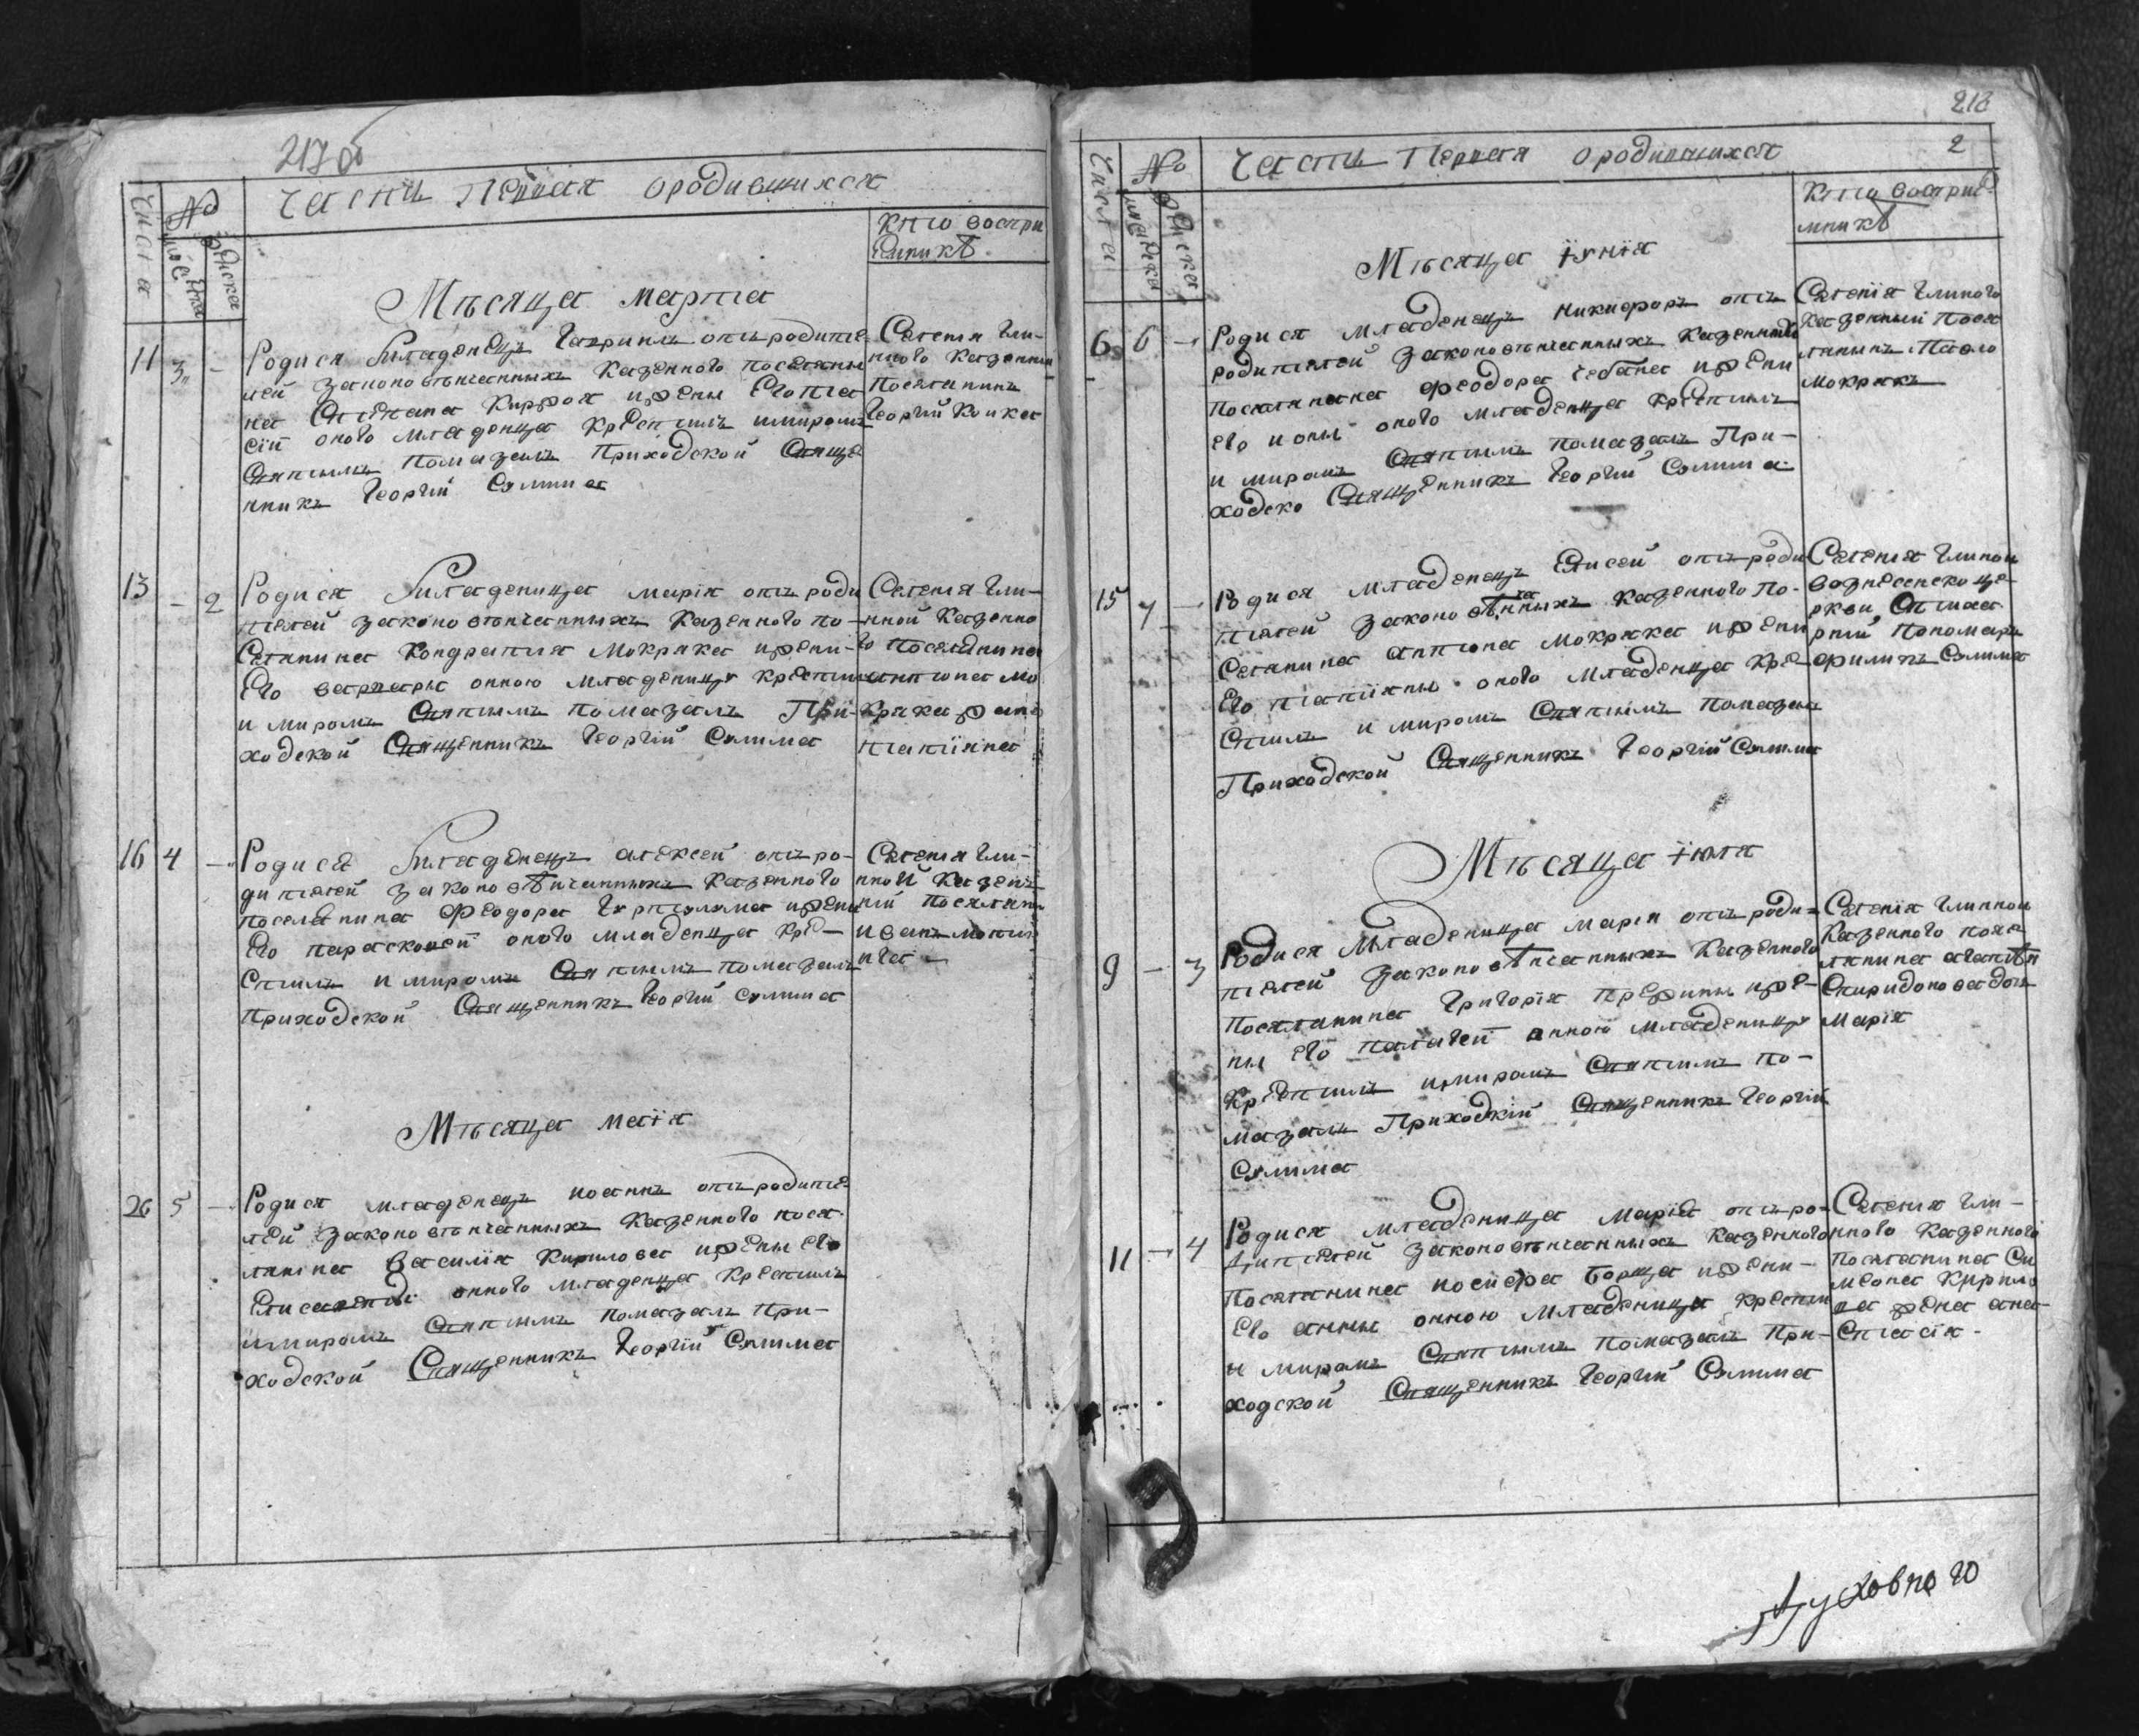 217 об
Часть Первая ородившихся
Числа
№
мужеска
женска
Кто воспри
емникъ
Мѣсяца марта
11 3 -
Родися Младенецъ Гавриилъ отъ родите
лей законовѣнчанныхъ Казенного поселяни
на Стефана и жены Его
оного младенца Крестилъ имиромъ
Святымъ Помазалъ Приходской Свяще
нникъ Георгий Сулима
Селения Гли-
нного Казенный
Поселянинъ
Георгий
13 - 2
Родися Младеница мария отъ роди
телей законовѣнчанныхъ Казенного по-
Селянина Кондратия Мокряка ижени
Его варвары онною младеницу крести
и миромъ Святымъ помазалъ При-
ходской Священникъ Георгий Сулима
Селения Гли-
нной Казенно
го поселянина
антона Мо
кряка жена
татиянна
16 4 -
Родися Младенецъ алексей отъ ро-
дителей законовѣнчанныхъ Казенного
поселянина Феодора ижени
Его параскевей оного младенца Кре-
стилъ и миромъ Святымъ помазалъ
Приходской Священникъ Георгий Сулима
Селения Гли-
нной Казен
ний поселянин
иванъ
Мѣсяца маїя
26 5 -
Родися младенецъ иоаннъ отъ родите-
лей законовѣнчанныхъ Казенного посе
лянина василия Кирилова ижены Его
онного младенца Крестилъ
имиромъ Святымъ помазалъ При-
ходской Священникъ Георгий Сулима
218
2
Часть Первая ородившихся
Числа
№
мужеска
женска
Кто восприе
мникъ
Мѣсяца їунїя
6 6 -
Родися младенецъ никифоръ отъ
родителей законовѣнчанныхъ Казенного
Поселянина феодора чебана ижени
его оного младенца крестилъ
и миромъ Святымъ помазалъ При-
ходско Священникъ Георгий Сулима
Селенїя Глиного
Казенный Посе
лянинъ Павло
Мокрякъ
15 7 -
Родися младенецъ Елисей отъ роди
телей законовѣнчанныхъ Казенного По-
Селянина антона Мокряка ижени
Его татїяны оного младенца Кре
стилъ и миромъ Святымъ помазалъ
Приходской Священникъ Георгий Сулима
Селения Глиной
вознесенско це-
ркви
Пономарь
филипъ Сулима
Мѣсяца їюля
9 - 3
Родися младеница мария отъ роди-
телей законовѣнчанныхъ Казенного
Поселянина Григорїя иже-
ны Его онною младеницу
Крестилъ имиромъ Святымъ по-
мазалъ Приходкїй Священникъ Георгїй
Сулима
Селенїя Глинной
Казенного посе
лянина
Спиридонова дочь
Марїя
11 - 4
Родися младеница Марїя отъ ро-
дителей законовѣнчанныхъ казенного
Поселянина иосифа борща ижени-
Его анны онною младеница крести
и миромъ Святымъ помазалъ При-
ходской Священникъ Георгий Сулима
Селения Гли-
нного Казенного
Поселянина Си
меона Кирило
ва жена ана-
стасїя
Духовного